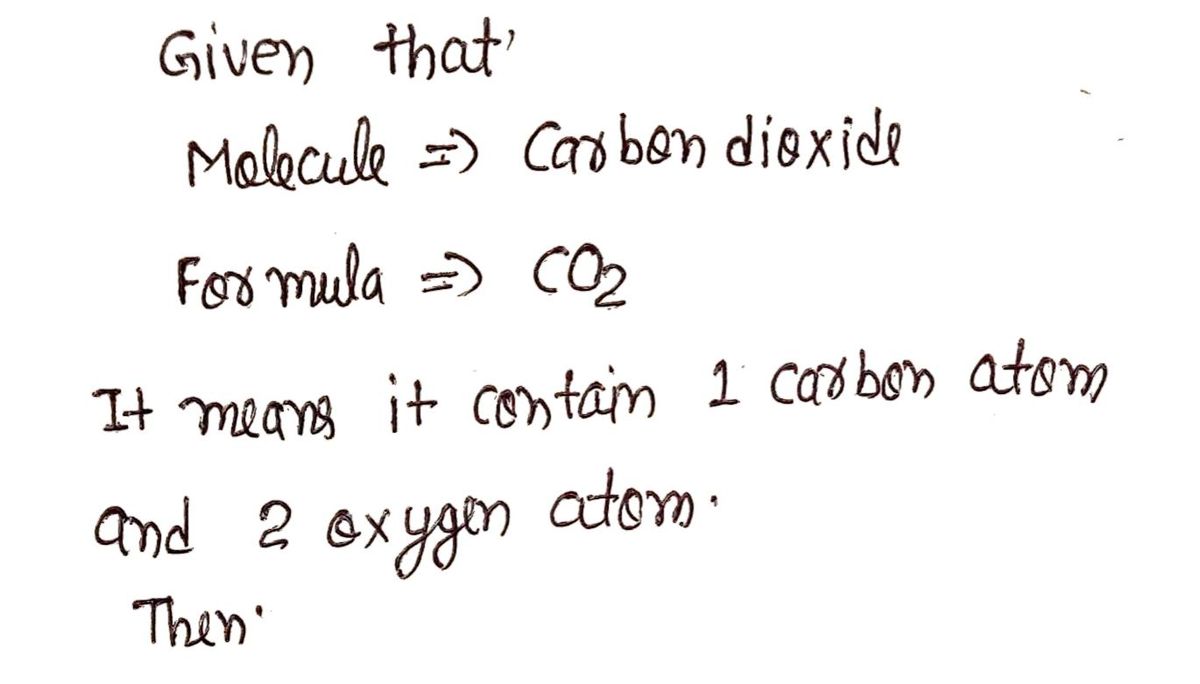 Given that'
Molecule => Carbon dioxide
Formula => CO2
It means it contain 1 carbon atom
and 2 oxygen atom.
Then